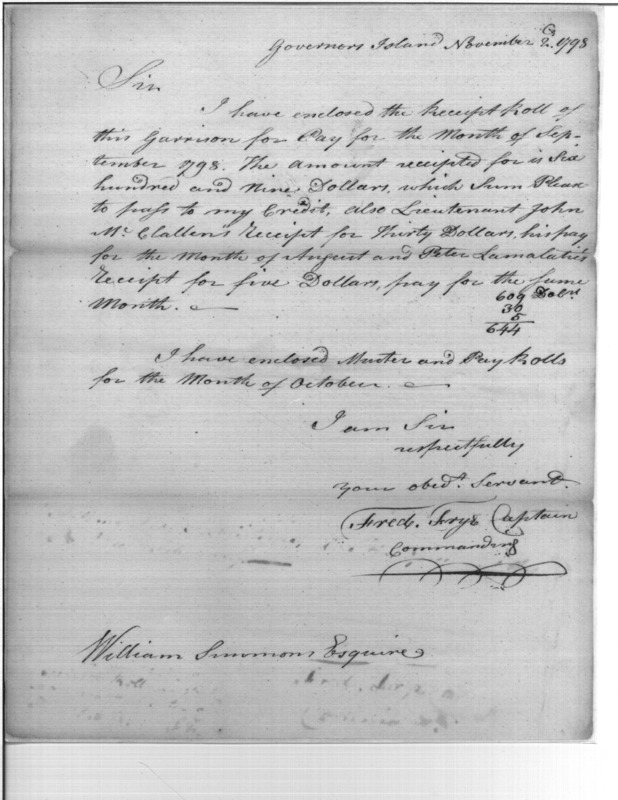 Governors Island November 2. 1798
Sir
I have enclosed the Receipt Roll of
this Garrison for Pay for the Month of Sep-
tember 1798. The amount receipted for is Six
hundred and Nine Dollars, which Sum Please
to pass to my Credit, also Lieutenant John
Mc Clallen's Receipt for Thirty Dollars, his pay
for the Month of August and Peter Lamalatie's
Receipt for five Dollars, pay for the same
Month.
609 Dolrs
30
5
644
I have enclosed Muster and Pay Rolls
for the Month of October.
I am Sir
respectfully
your obedt. Servant.
Fredk. Frye Captain
Commanding
William Simmons Esquire